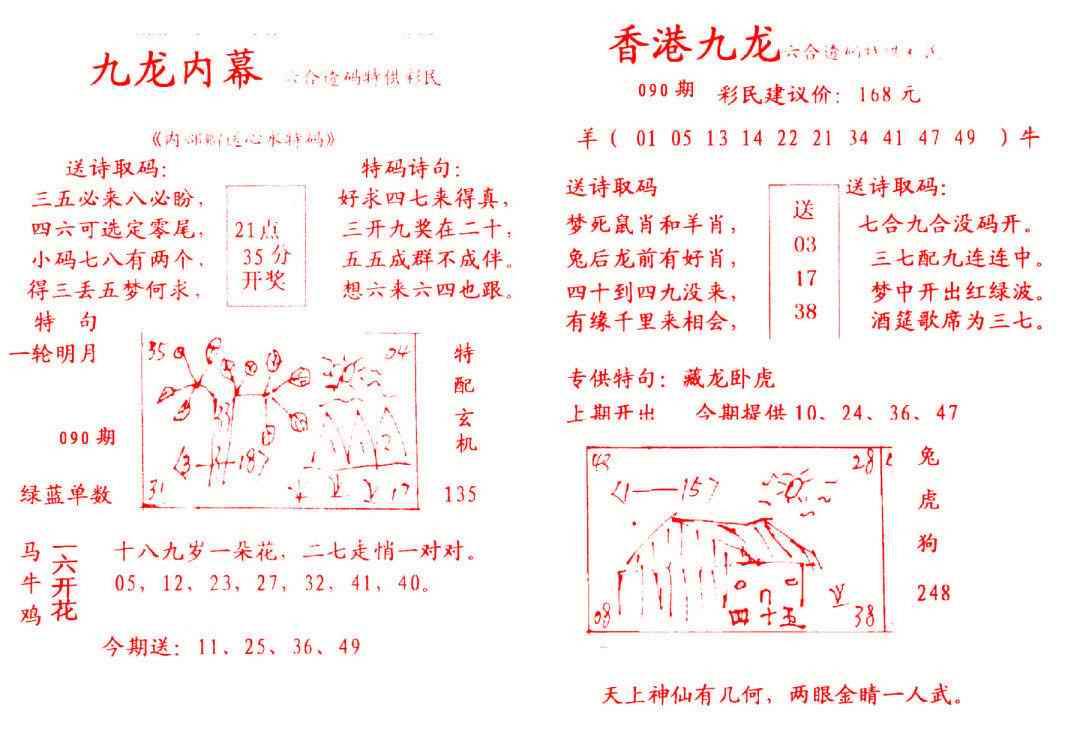 九龙内幕
六合造码特供彩民
送诗取码：
三五必来八必盼，
四六可选定零尾，
小码七八有两个，
得三丢五梦何求，
21点
35分
开奖
特码诗句：
好求四七来得真，
三开九奖在二十；
五五成群不成伴。
想六来六四也跟。
特 句
一轮明月
090期
绿蓝单数
35
04
31
17
特
配
玄
机
135
马
牛
鸡
一六开花
十八九岁一朵花，二七走悄一对对。
05，12，23，27，32，41，40。
今期送：11、25、36、49
香港九龙
090期 彩民建议价：168元
羊（ 01 05 13 14 22 21 34 41 47 49 ）牛
送诗取码
梦死鼠肖和羊肖，
兔后龙前有好肖，
四十到四九没来，
有缘千里来相会，
送
03
17
38
送诗取码：
七合九合没码开。
三七配九连连中。
梦中开出红绿波。
酒筵歌席为三七。
专供特句：藏龙卧虎
上期开出 今期提供10、24、36、47
42
28
08
四十五
38
兔
虎
狗
248
天上神仙有几何，两眼金睛一人武。